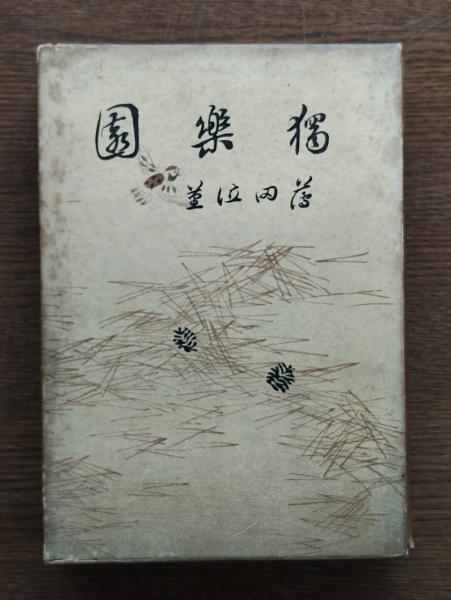 獨樂園
薄田泣菫